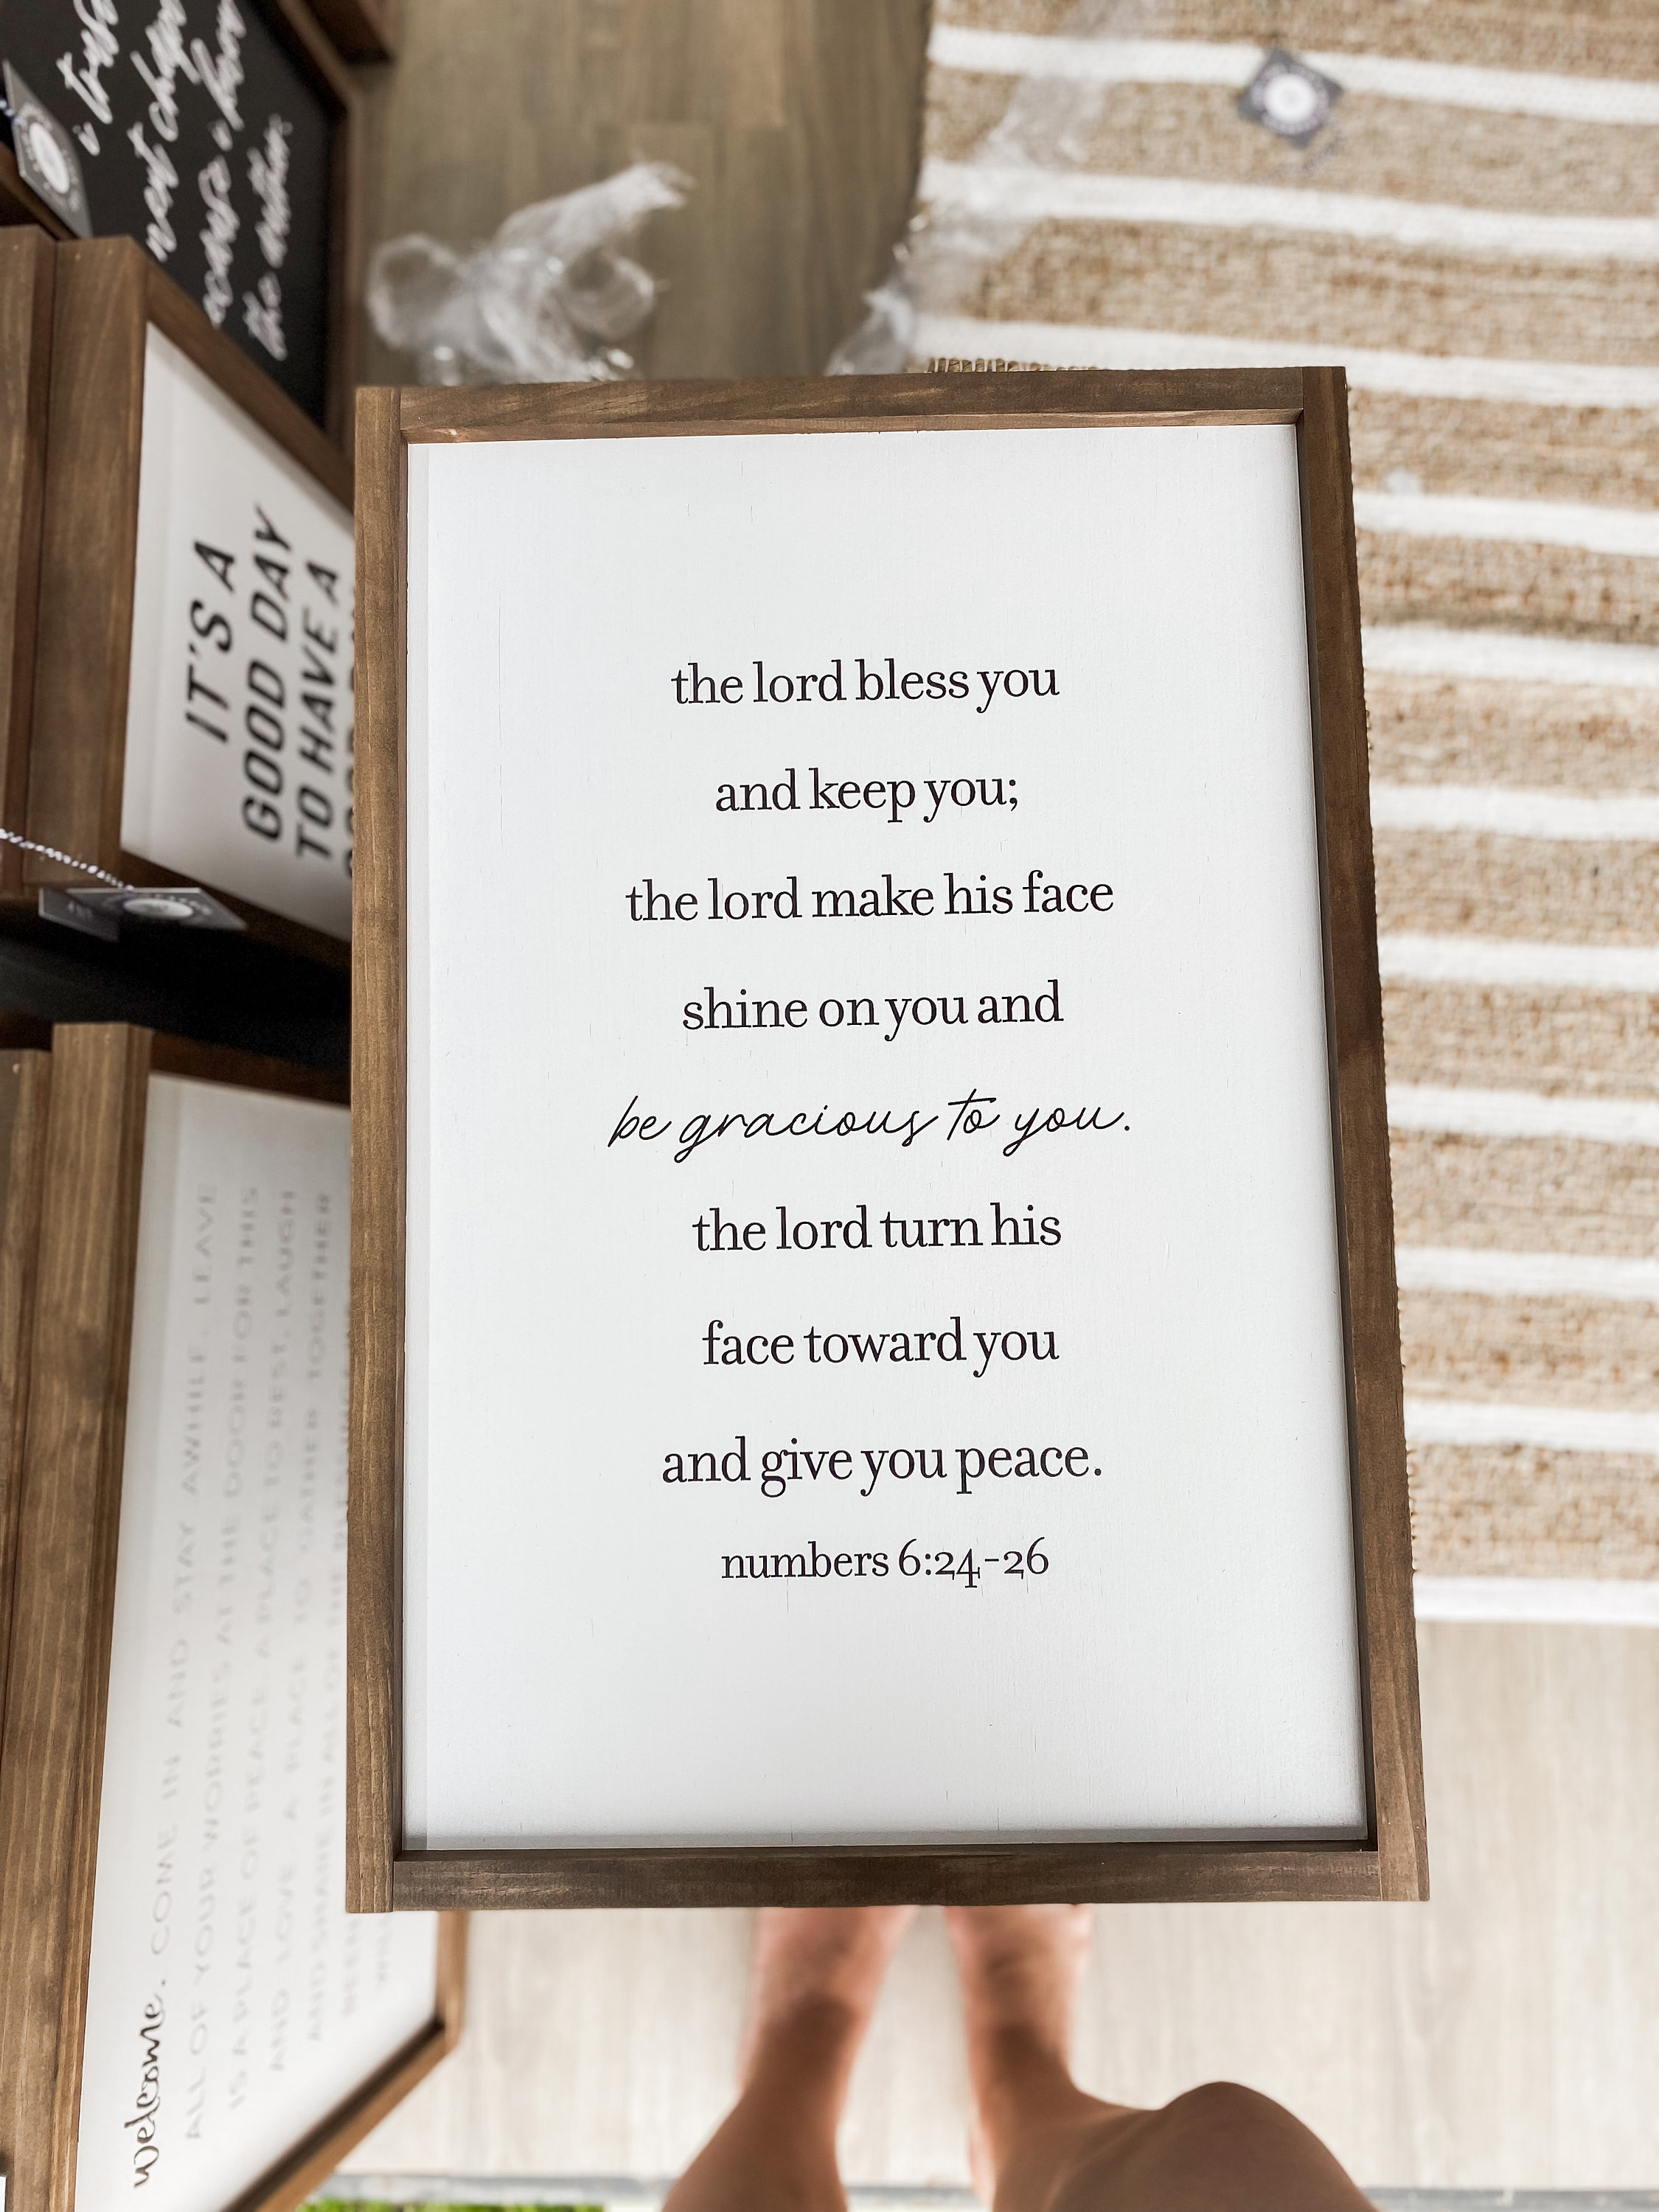 the lord bless you
and keep you;
the lord make his face
shine on you and
be gracious to you.
the lord turn his
face toward you
and give you peace.
numbers 6:24-26
i
next
the
IT'S A
GOOD DAY
TO HAVE A
welcome. COME IN AND STAY AWHILE. LEAVE
ALL OF YOUR WORRIES AT THE DOOR FOR THIS
IS A PLACE OF PEACE A PLACE TO REST, LAUGH
AND LOVE. A PLACE TO GATHER TOGETHER
AND SHARE IN ALL OF